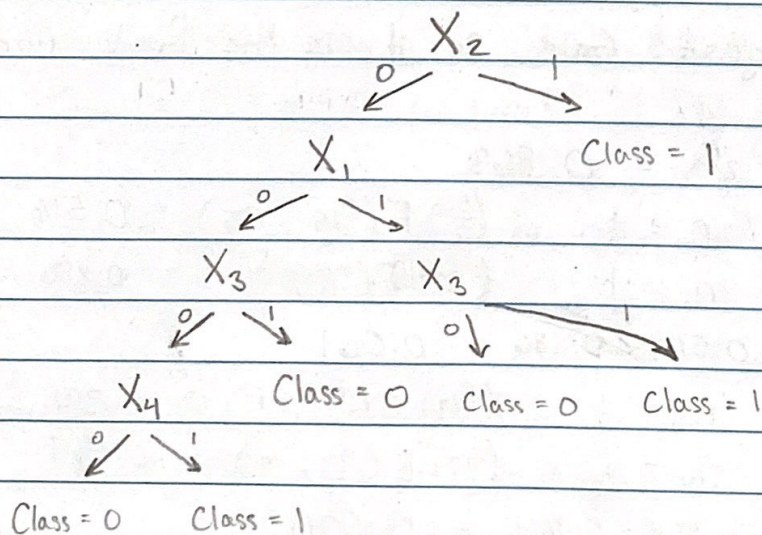 X₂
0 1
X₁ Class = 1
0 1
X₃ X₃
0 1 0 1
X₄ Class = 0 Class = 0 Class = 1
0 1
Class = 0 Class = 1